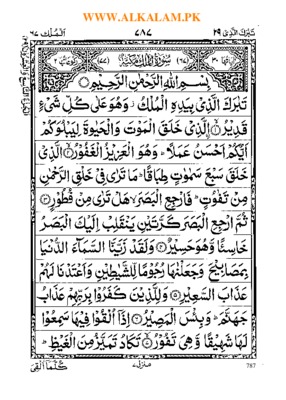 WWW.ALKALAM.PK
تبٰرك الذی ٢٩
٧٨٧
الملك ٦٧
بِسْمِ اللهِ الرَّحْمٰنِ الرَّحِيْمِ
تَبٰرَكَ الَّذِيْ بِيَدِهِ الْمُلْكُ وَهُوَ عَلٰى كُلِّ شَيْءٍ
قَدِيْرُ ۙ الَّذِيْ خَلَقَ الْمَوْتَ وَالْحَيٰوةَ لِيَبْلُوَكُمْ
اَيُّكُمْ اَحْسَنُ عَمَلًا ؕ وَهُوَ الْعَزِيْزُ الْغَفُوْرُ ۙ الَّذِيْ
خَلَقَ سَبْعَ سَمٰوٰتٍ طِبَاقًا ؕ مَا تَرٰى فِيْ خَلْقِ الرَّحْمٰنِ
مِنْ تَفٰوُتٍ ؕ فَارْجِعِ الْبَصَرَ ۙ هَلْ تَرٰى مِنْ فُطُوْرٍ
ثُمَّ ارْجِعِ الْبَصَرَ كَرَّتَيْنِ يَنْقَلِبْ اِلَيْكَ الْبَصَرُ
خَاسِئًا وَّهُوَ حَسِيْرٌ وَلَقَدْ زَيَّنَّا السَّمَآءَ الدُّنْيَا
بِمَصَابِيْحَ وَجَعَلْنٰهَا رُجُوْمًا لِّلشَّيٰطِيْنِ وَاَعْتَدْنَا لَهُمْ
عَذَابَ السَّعِيْرِ وَلِلَّذِيْنَ كَفَرُوْا بِرَبِّهِمْ عَذَابُ
جَهَنَّمَ ؕ وَبِئْسَ الْمَصِيْرُ اِذَآ اُلْقُوْا فِيْهَا سَمِعُوْا
لَهَا شَهِيْقًا وَّهِيَ تَفُوْرُ ۙ تَكَادُ تَمَيَّزُ مِنَ الْغَيْظِ ؕ
كُلَّمَآ اُلْقِيَ
787